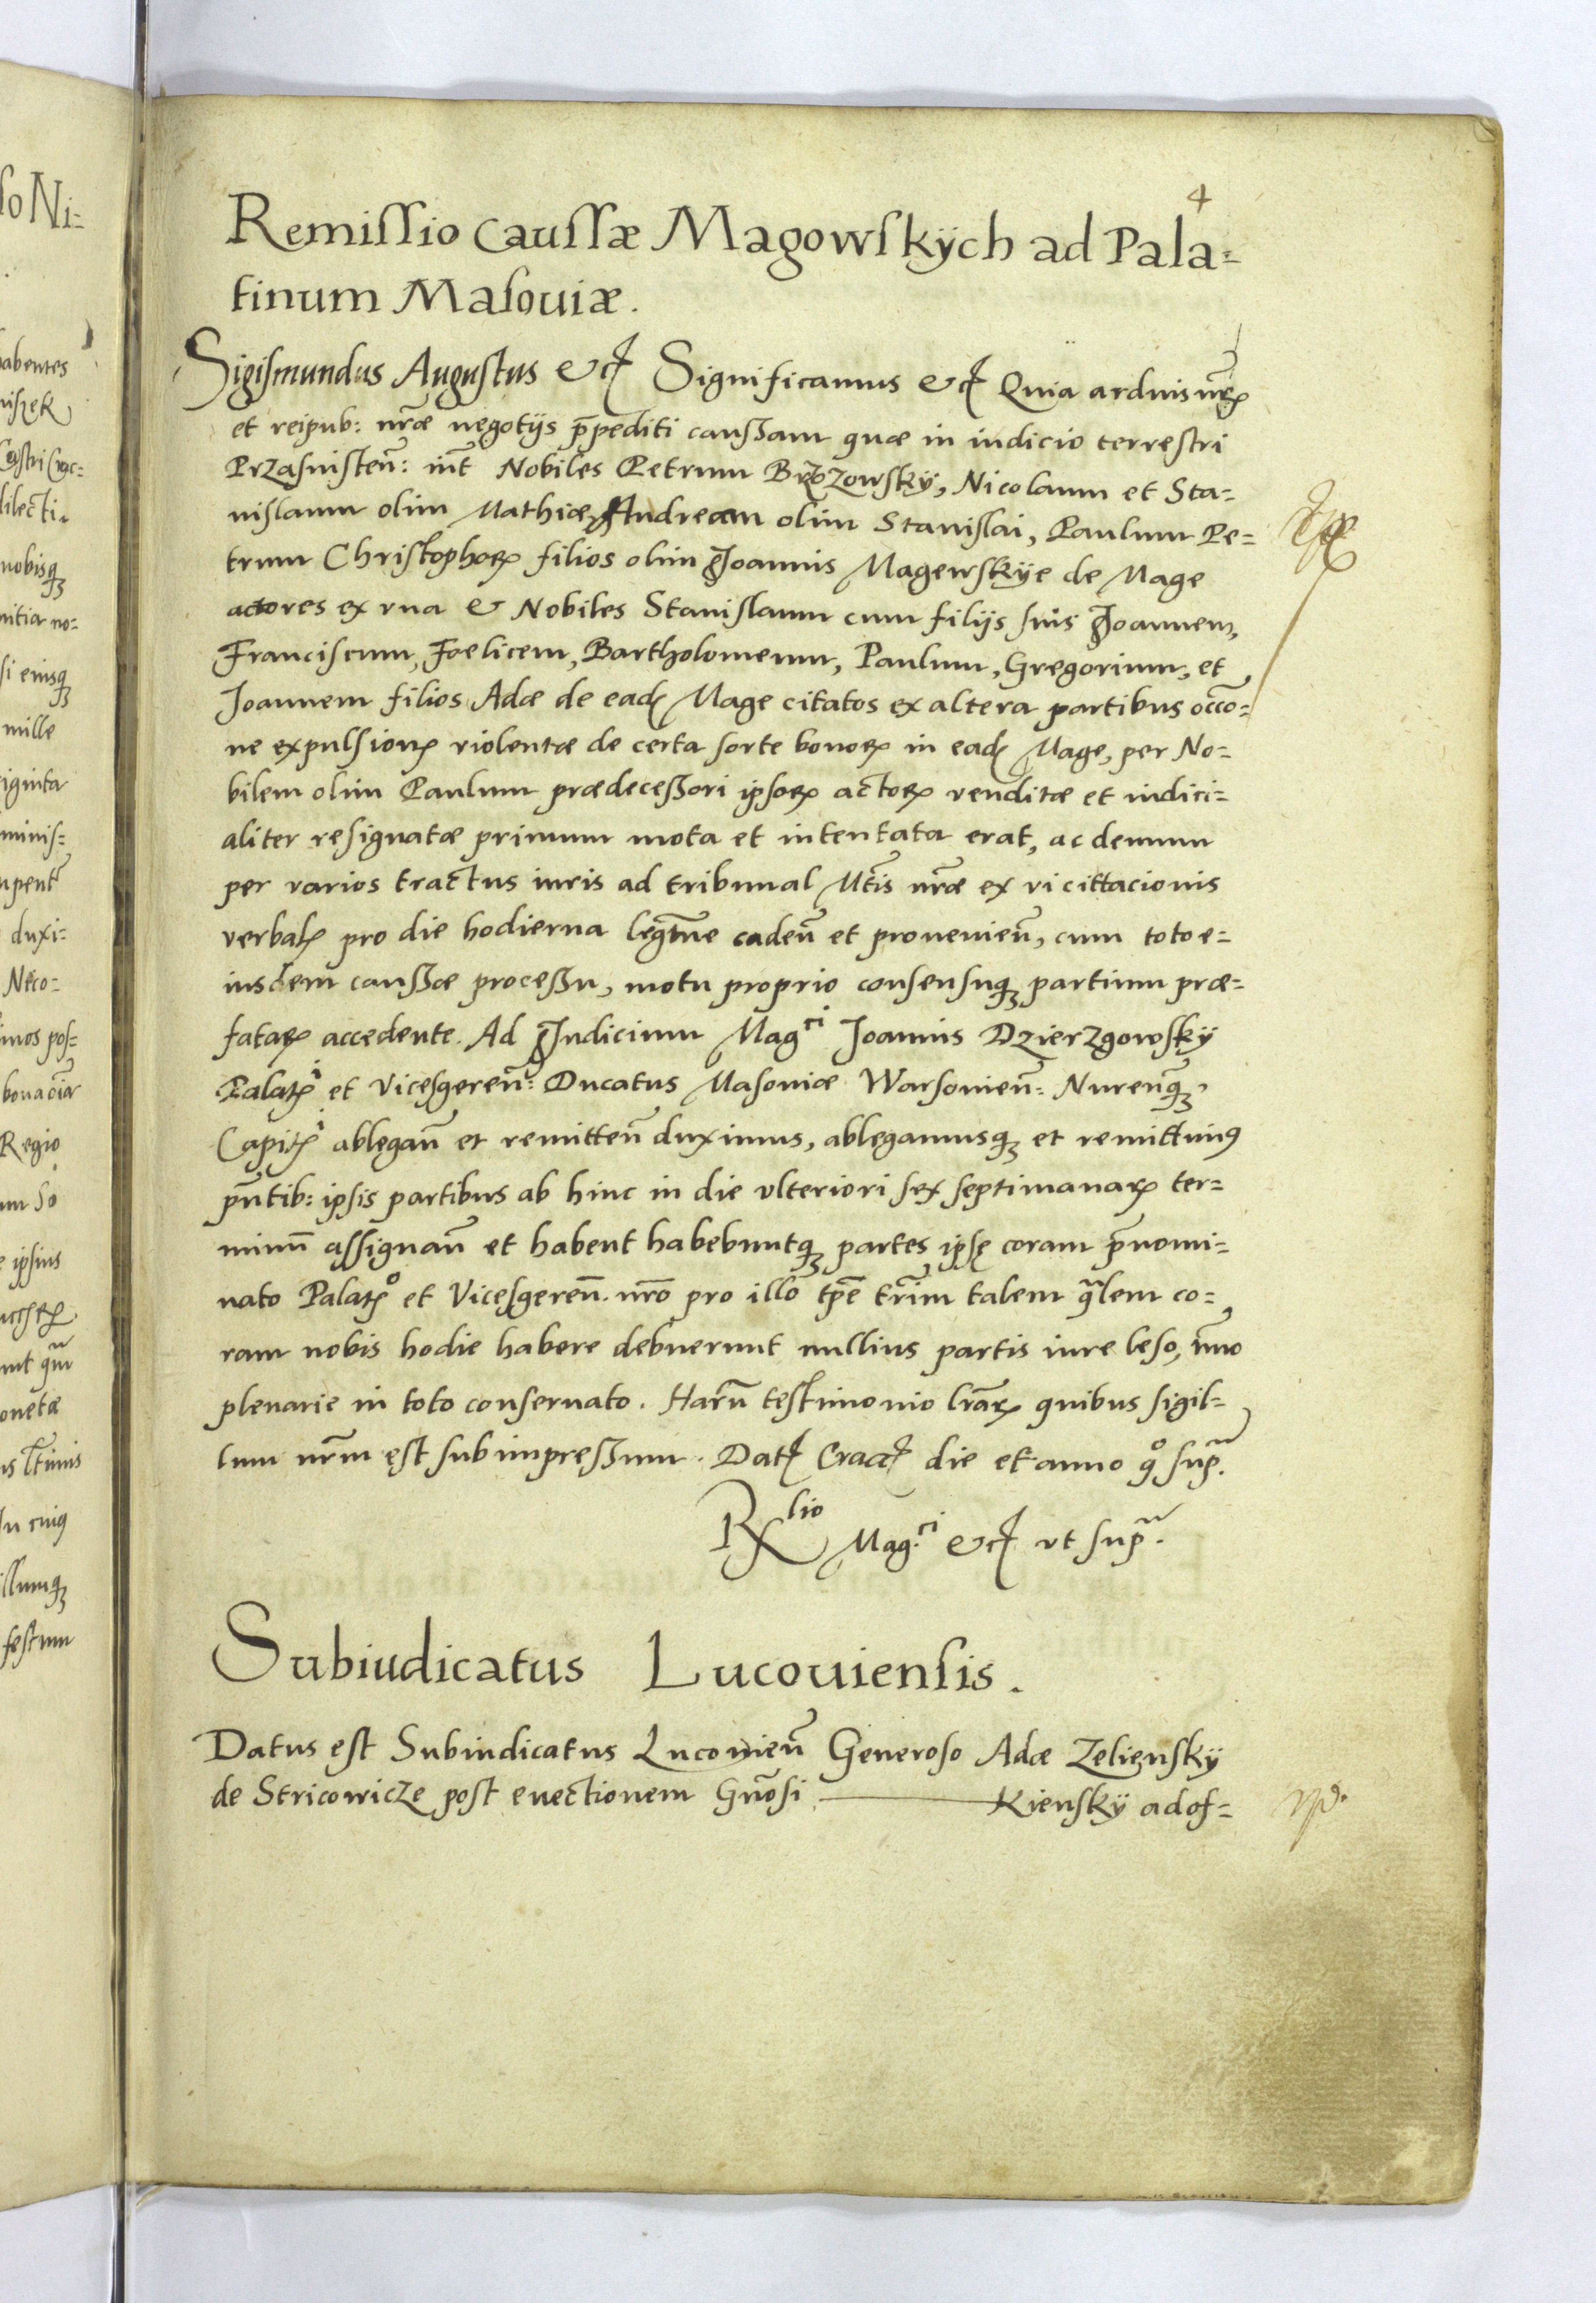 4
Remissio Caussæ Magowskÿch ad Pala=
tinum Masouiæ.
Sigismundus Augustus etc Significamus etc Quia arduis nr̃is
et reipub: nr̃æ negotijs p̃pediti caussam quæ in iudicio terrestri
Przasnisteñ: int̃ Nobiles Petrum Brzozowskÿ, Nicolaum et Sta=
nislaum olim Mathiæ, Andream olim Stanislai, Paulum Pe=
trum Christophoꝝ filios olim Joannis Magewskÿe de Mage
actores ex vna & Nobiles Stanislaum cum filijs suis Joannem,
Franciscum, Fœlicem, Bartholomeum, Paulum, Gregorium, et
Joannem filios Adæ de ead Mage citatos ex altera partibus occõ=
ne expulsionꝭ violentæ de certa sorte bonoꝝ in ead Mage, per No=
bilem olim Paulum prædecessori ipsoꝝ actoꝝ venditæ et iudici=
aliter resignatæ primum mota et intentata erat, ac demum
per varios tractus iuris ad tribunal Mt̃is nr̃æ ex vi cittacionis
verbalꝭ pro die hodierna legit̃me cadeñ et provenieñ, cum toto e=
iusdem caussæ processu, motu proprio consensuqꝫ partium præ=
fataꝝ accedente. Ad Judicium Mag.ci Joannis Dzierzgowsky
Palatꝭi et Vicesgereñ: Ducatus Masouiæ Warsouieñ: Nureñqꝫ
Capitꝭi ablegañ et remitteñ duximus, ablegamusqꝫ et remittimꝰ
pñtib: ipsis partibus ab hinc in die vlteriori sex septimanaꝝ ter=
minũ assignañ et habent habebuntqꝫ partes ipsę coram p̃nomi=
nato Palatꝭo et Vicesgereñ. nr̃o pro illo tp̃e tr̃im talem q̃lem co=
ram nobis hodie habere debuerunt nullius partis iure leso, im̃o
plenarie in toto conseruato. Harũ testimonio lr̃aꝝ quibus sigil=
lum nr̃m est subimpressum. Dat Crac die et anno qo sup̃.
Rx lio Mag.ci etc vt sup̃.
Subiudicatus Lucouiensis.
Datus est Subiudicatus Lucouieñ Generoso Adæ Zelienskÿ
de Stricowicze post euectionem Gñosi ——— Kienskÿ ad of=